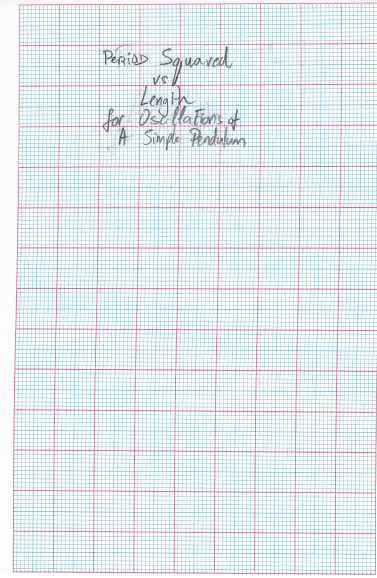 Period Squared
vs
Length
for Oscillations of
A Simple Pendulum